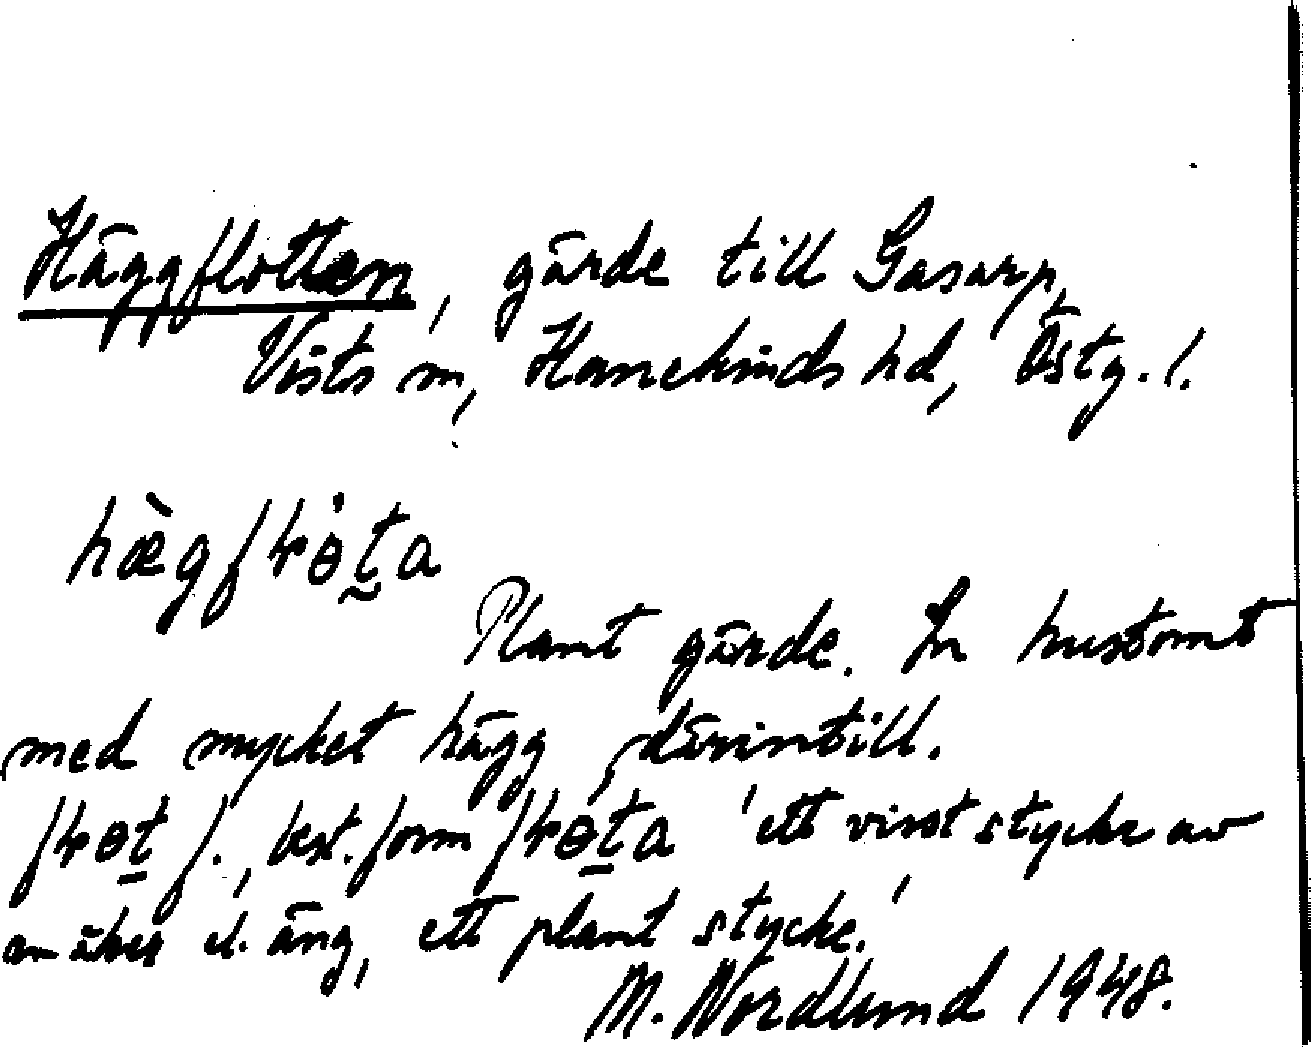 Häggflotten, gärde till Gasarp,
Vists sn, Hanekinds hd, Östg. l.
hæ̀gfɫɵ̇t̰a
Plant gärde. En hustomt
med mycket hägg därintill.
fɫɵṯ f., best. form fɫɵ́ṯa 'ett visst stycke av
en åker el. äng, ett plant stycke.'
M. Nordlund 1948.